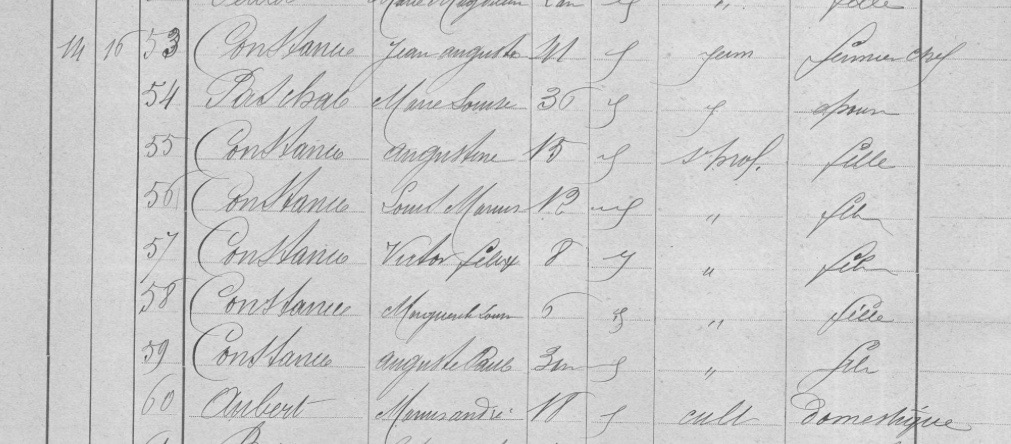 Marie fille
14 16 53 Constance Jean auguste 41 fermier chef
54 Paschal Marie Louise 36 y
55 Constance augustine 15 s prof. fille
56 Constance Louis Marius 12 " fils
57 Constance Victor félix 8 " fils
58 Constance Marguerite Louise 6 " fille
59 Constance auguste Paul 3 an " fils
60 Aubert Marius andré 18 cult Domestique